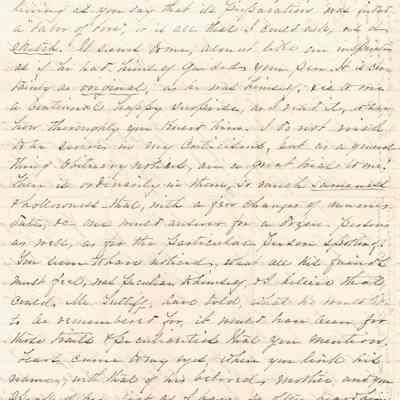 living as you say that its preparation was indeed
a "labor of love", it is all that I could ask, as a
sketch. It seems to me, almost like an inspiration
as if he had himself guided your pen. It is cer-
tainly as original, as he was himself, & is to me
a continual happy surprise, as I read it, to see
how thoroughly you knew him. I do not wish
to be severe in my criticisms, but as a general
thing obituary notices, are a great trial to me.
There is ordinarily in them, so much sameness
& hollowness that, with a few changes of names
dates, &c one would answer for a dozen persons
as well, as for the particular person spoken of.
You seem to have noticed, what all his friends
must feel, was peculiar to himself, & I believe that
could Mr. have told, what he would like
to be remembered for, it would have been for
those traits & peculiarities that you mention.
Tears came to my eyes, when you link his
name, with that of his beloved mother, and you
speak of her just as I have so often heard him